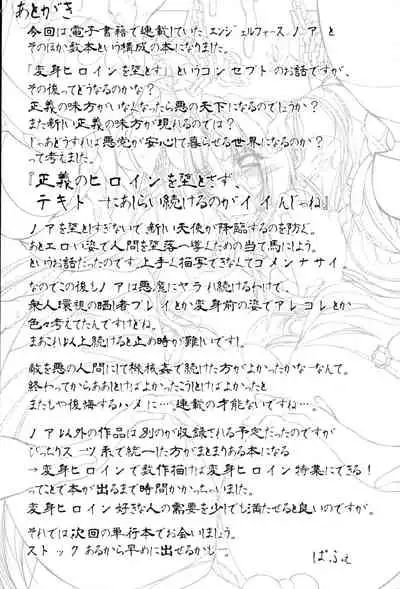 あとがき
今回は電子書籍で連載していたエンジェルフォース ノアと
そのほか数本という構成の本になりました。
「変身ヒロインを堕とす」というコンセプトのお話ですが、
その後ってどうなるのかな?
正義の味方がいなくなったら悪の天下になるのでしょうか?
また新しい正義の味方が現れるのでは?
じゃあどうすれば悪党が安心して暮らせる世界になるのか?
って考えました。
『正義のヒロインを堕とさず、
テキトーにあしらい続けるのがイイんじゃね』
ノアを堕としすぎないで新しい天使が降臨するのを防ぐ。
あとエロい姿で人間を堕落へ導くための当て馬にしよう。
というお話だったのです。上手く描写できなくてゴメンナサイ。
なのでこの後もノアは悪魔にヤラれ続けるわけで、
衆人環視の晒し者プレイとか変身前の姿でアレコレとか
色々考えてたんですけどね。
まあこれ以上続けると止め時が難しいです!
敵を悪の人間にして機械姦で続けた方がよかったかなーなんて。
終わってからああしとけばよかったこうしとけばよかったと
またしや後悔するハメに…連載の才能ないですね…。
ノア以外の作品は別のが収録される予定だったのですが
ぴっちりスーツ系で統一した方がまとまりある本になる
→変身ヒロインで数作描けば変身ヒロイン特集にできる!
ってことで本が出るまで時間かかっちゃいました。
変身ヒロイン好きな人の需要を少しでも満たせると良いのですが。
それでは次回の単行本でお会いしましょう。
ストックあるから早めに出せるかしー。
ぱふぇ